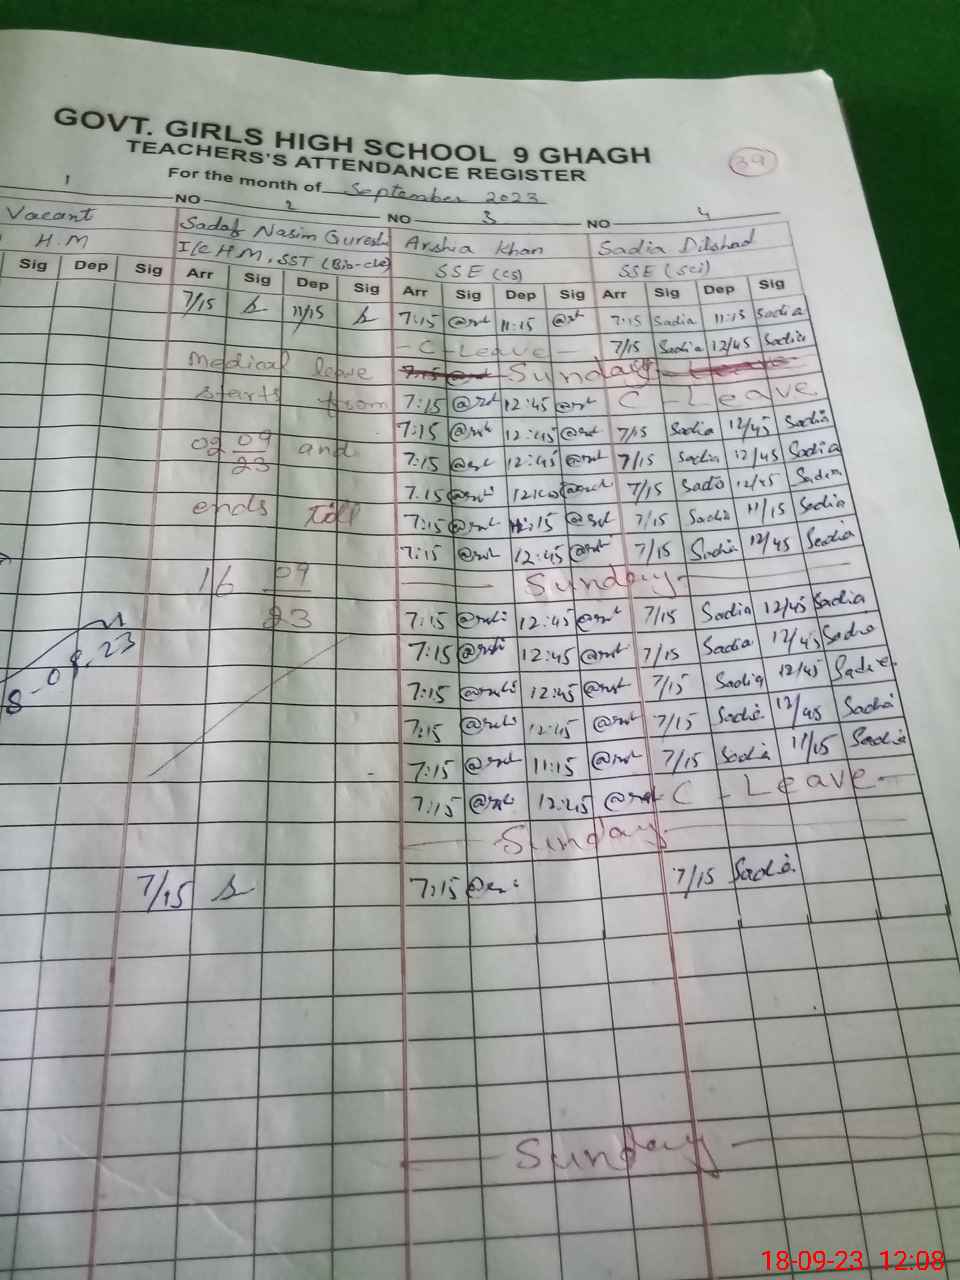 GOVT. GIRLS HIGH SCHOOL 9 GHAGH
TEACHERS'S ATTENDANCE REGISTER
39
For the month of September 2023
1 NO 2 NO 3 NO 4
Vacant Sadaf Nasim Qureshi Arshia Khan Sadia Dilshad
H.M I/C H.M, SST (Bio-che) SSE (cs) SSE (sci)
Sig Dep Sig Arr Sig Dep Sig Arr Sig Dep Sig Arr Sig Dep Sig
7/15 11/15 7:15 11:15 7:15 Sadia 11:15 Sadia
- C - Leave - 7/15 Sadia 12/45 Sadia
Medical leave Sunday
starts from 7:15 12:45 C - Leave
7:15 12:45 7/15 Sadia 12/45 Sadia
02 09 23 and 7:15 12:45 7/15 Sadia 12/45 Sadia
7:15 7/15 Sadia 12/45 Sadia
ends till 7:15 11:15 7/15 Sadia 11/15 Sadia
7:15 12:45 7/15 Sadia 12/45 Sadia
16 09 23 Sunday
7:15 12:45 7/15 Sadia 12/45 Sadia
7:15 12:45 7/15 Sadia 12/45 Sadia
7:15 12:45 7/15 Sadia 12/45 Sadia
7:15 12:45 7/15 Sadia 12/45 Sadia
7:15 11:15 7/15 Sadia 11/15 Sadia
7:15 12:45 C - Leave -
Sunday
7/15 7:15 7/15 Sadia
Sunday
18-09-23 12:08